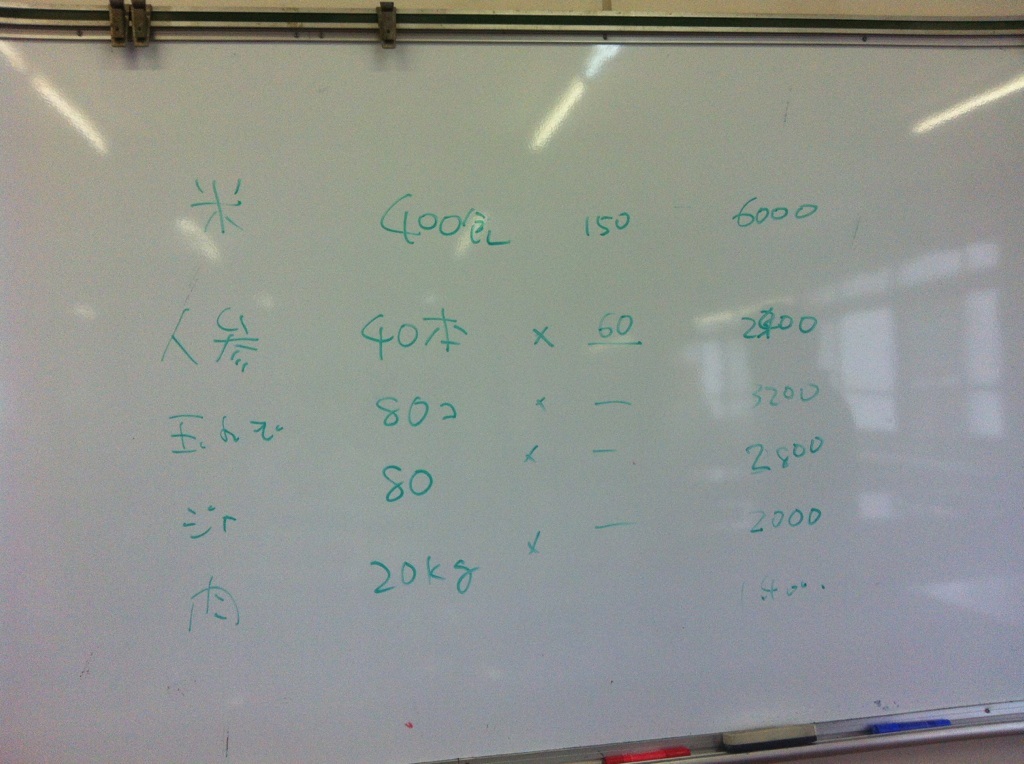 米 400 150 6000
人参 40本 × 60 2400
玉ねぎ 80コ × — 3200
ジャ 80 × — 2800
肉 20kg × — 2000